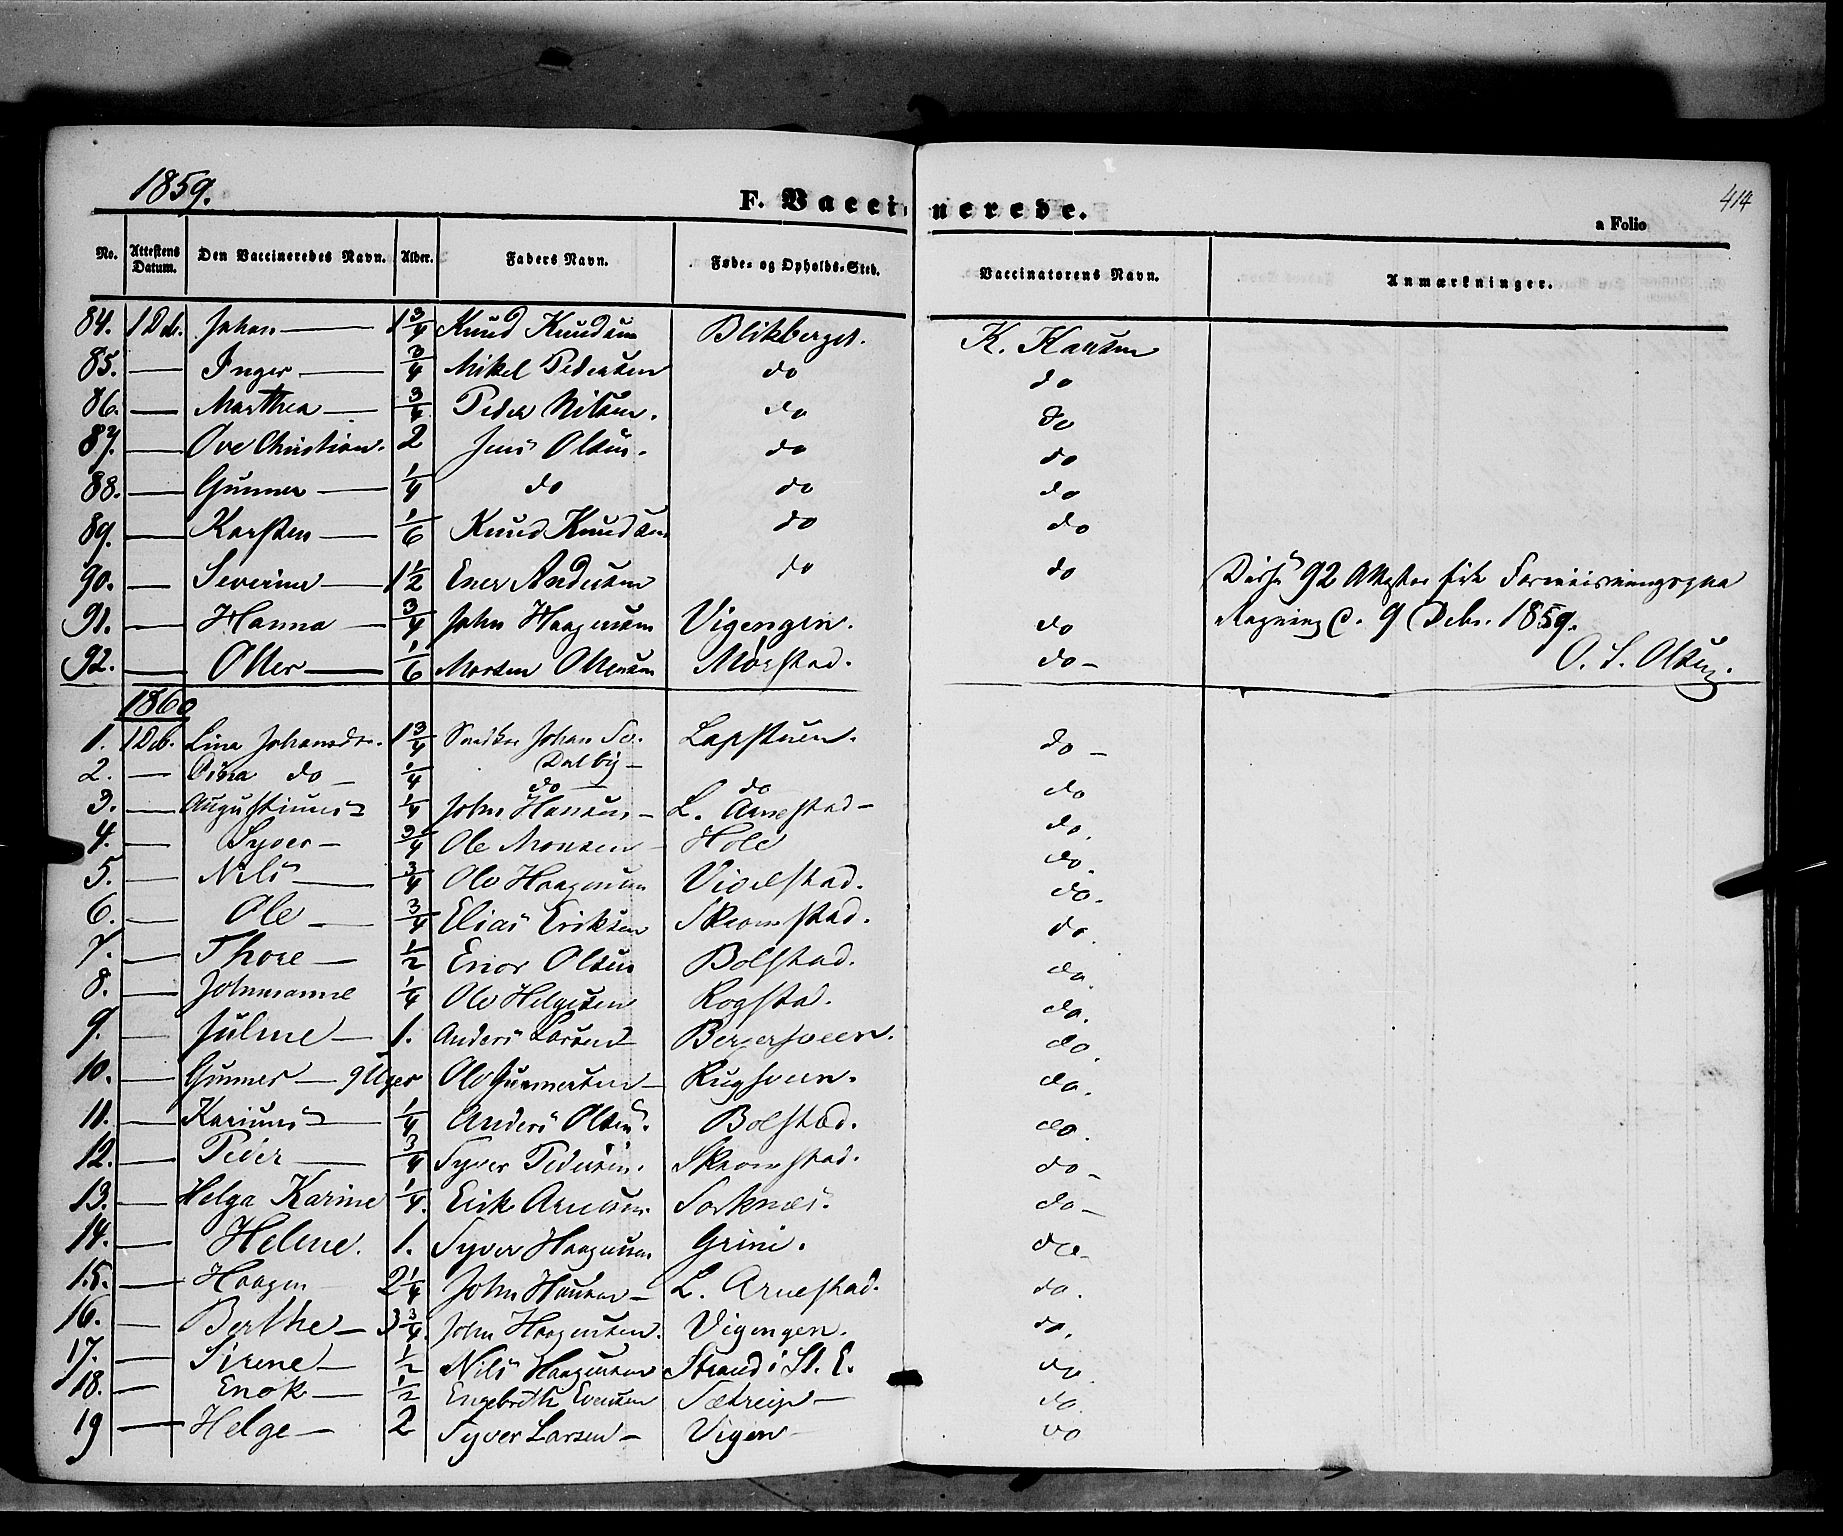 1859.
F. Vaccinerede.
414
a Folio
No. Attestens Datum. Den Vaccineredes Navn. Alder. Faders Navn. Føde- og Opholds-Sted. Vaccinatorens Navn. Anmærkninger.
84. 1 Deb. Johan — 1 3/4 Knud Knudsen Blikberget. K. Hansen
85. — Inger — 3/4 Mikel Pedersen do do
86. — Marthea — 3/4 Peder Nilsen. do do
87. — Ove Christian. 2 Jens Olsen. do do
88. — Gunner — 1/4 do do do
89. — Karsten — 1/6 Knud Knudsen do do
90. — Severine — 1 1/2 Ener Andersen do do 92 Attester
91. — Hanna — 3/4 John Haagensen Vigengen. do Regning 9 Debr. 1859.
92. — Otter — 1/6 Morten Ottersen Mørstad. do - O. S. Olsen.
1860
1. 1 Deb. Lina Johansdr. 1 3/4 Snedker Johan Dalby — Lapstuen. do -
2. — do — 1/4 do do do
3. — Augustinus 1/4 John Hansen — L. Arnestad — do.
4. — Syver — 3/4 Ole Monsen — Hole do.
5. — Nils — 3/4 Ole Haagensen Vigelstad. do.
6. — Ole — 3/4 Elias Eriksen Skromstad. do.
7. — Thore — 1/2 Enor Olsen Bolstad. do.
8. — Johnmanne 1/4 Ole Helgesen Rogstad. do.
9. — Juline — 1. Anders Larsen Bergersveen. do.
10. — Gunner — 9 Uger Ole Gunnersen — Rugsveen. do.
11. — Karinus 1/4 Anders Olsen. Bolstad. do.
12. — Peder — 3/4 Syver Pedersen. Skromstad. do -
13. — Helga Karine 1/4. Erik Arnesen Sorknæs. do -
14. — Helene. 1. Syver Haagensen Grini. do -
15. — Haagen 2 1/4 John Hansen — L. Arnestad. do.
16. — Berthe — 3 3/4. John Haagensen. Vigengen. do.
17. — Sirene — 1/2 Nils Haagensen Strand i St. E. do.
18. — Enok — 1/2 Engebreth Evensen — do.
19 — Helge — 2 Syver Larsen — Vigen — do